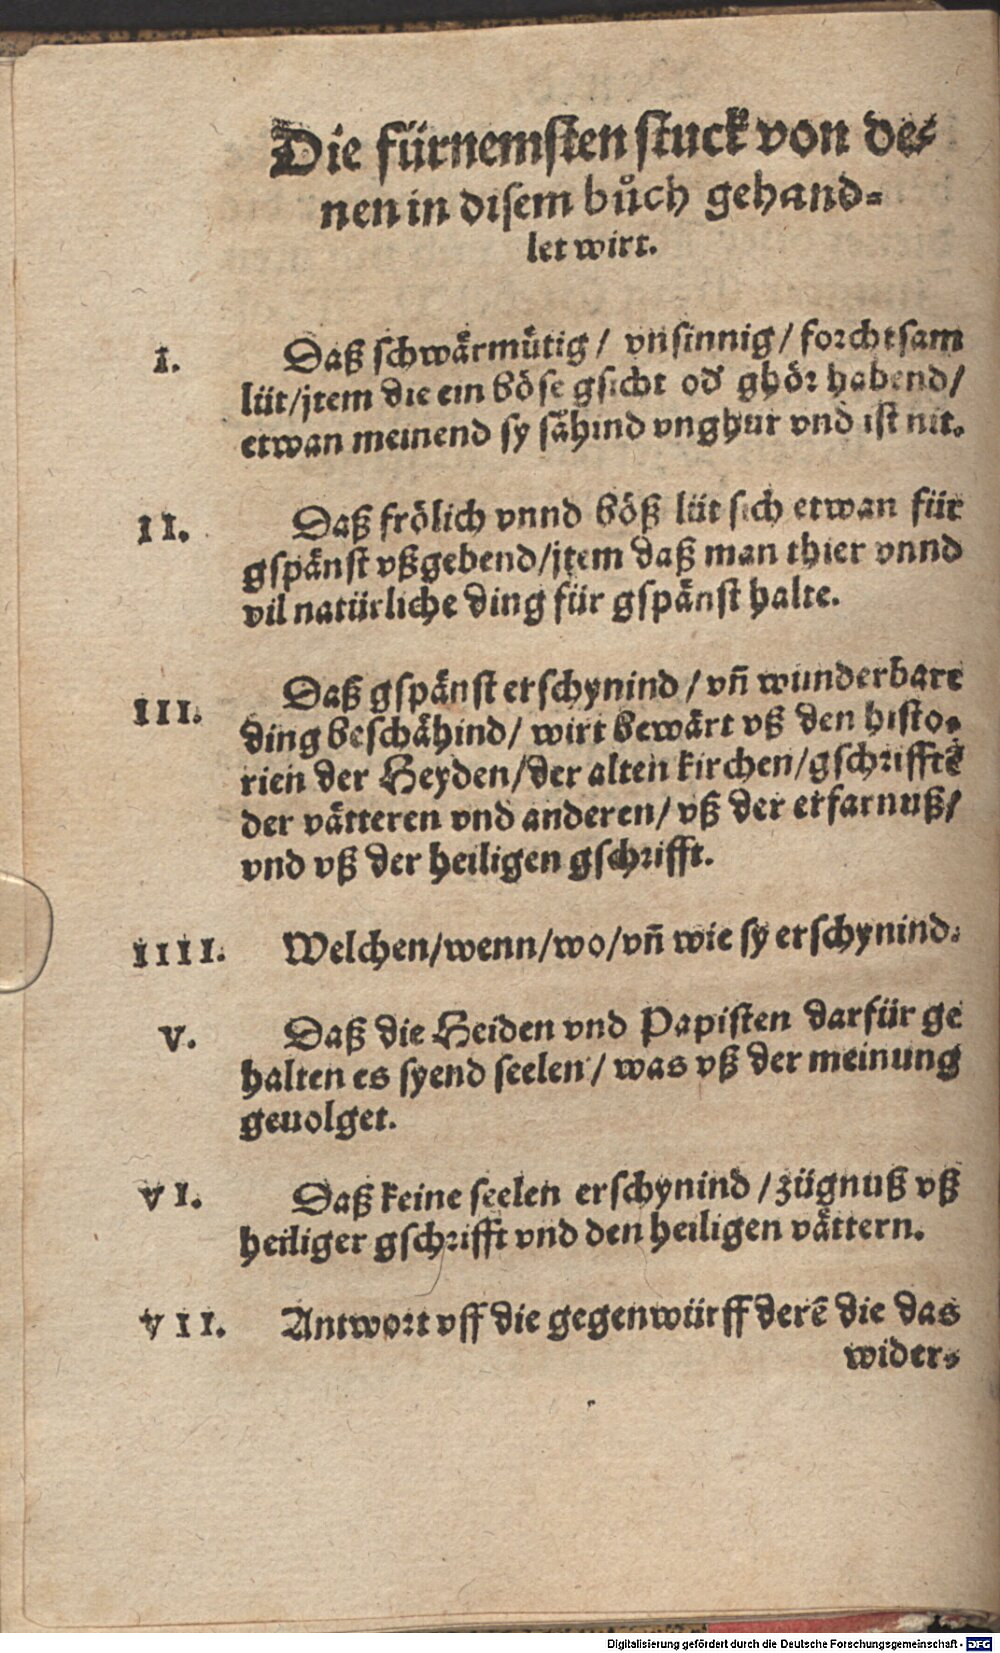 Die fürnemsten stuck von de⸗
nen in disem bůch gehand⸗
let wirt.
I. Daß schwårmůtig / vnsinnig / forchtsam
lüt / jtem die ein böse gsicht od' ghör habend /
etwan meinend sy såhind vnghür vnd ist nit.
II. Daß frölich vnnd böß lüt sich etwan für
gspånst vßgebend / jtem daß man thier vnnd
vil natürliche ding für gspånst halte.
III. Daß gspånst erschynind / vn̄ wunderbare
ding beschåhind / wirt bewårt vß den histo⸗
rien der Heyden / der alten kirchen / gschrifftē
der våtteren vnd anderen / vß der erfarnuß /
vnd vß der heiligen gschrifft.
IIII. Welchen / wenn / wo / vn̄ wie sy erschynind.
V. Daß die Heiden vnd Papisten darfür ge
halten es syend seelen / was vß der meinung
geuolget.
VI. Daß keine seelen erschynind / zügnuß vß
heiliger gschrifft vnd den heiligen våttern.
VII. Antwort vff die gegenwürff derē die das
wider⸗
Digitalisierung gefördert durch die Deutsche Forschungsgemeinschaft - DFG